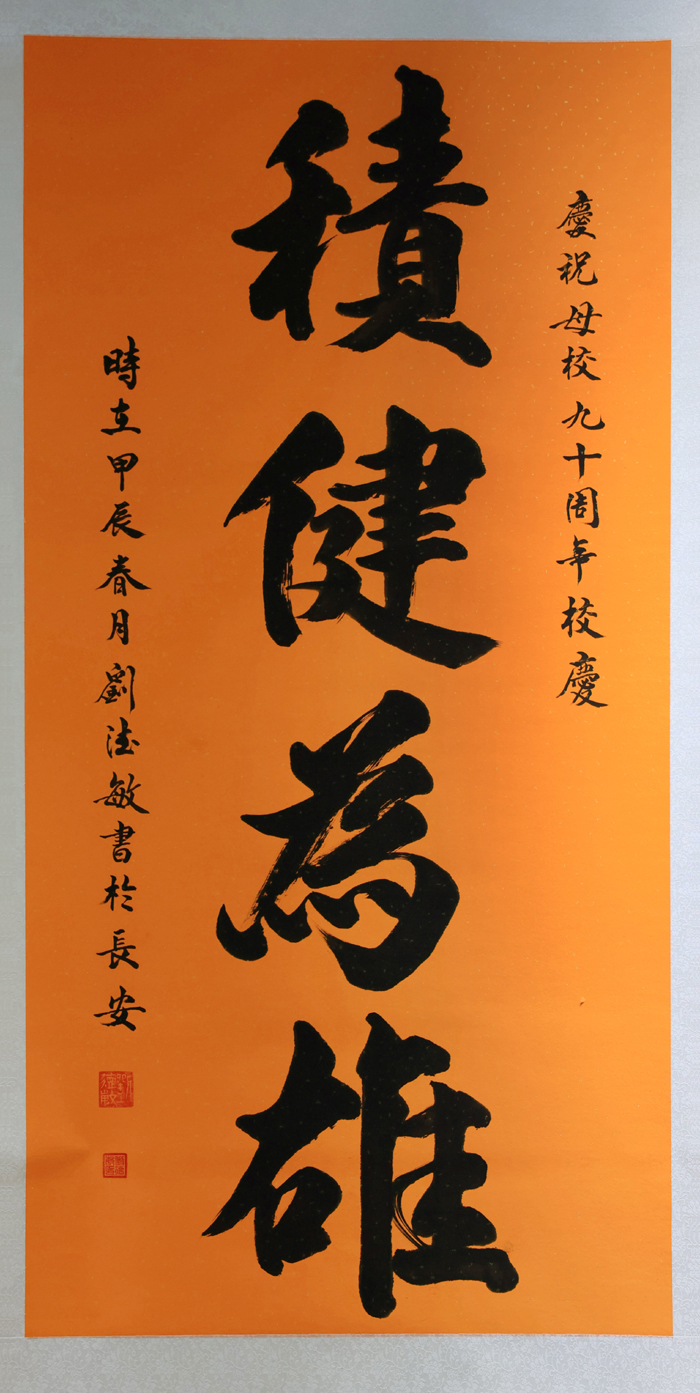 慶祝母校九十周年校慶
積健為雄
時在甲辰春月劉法敏書於長安